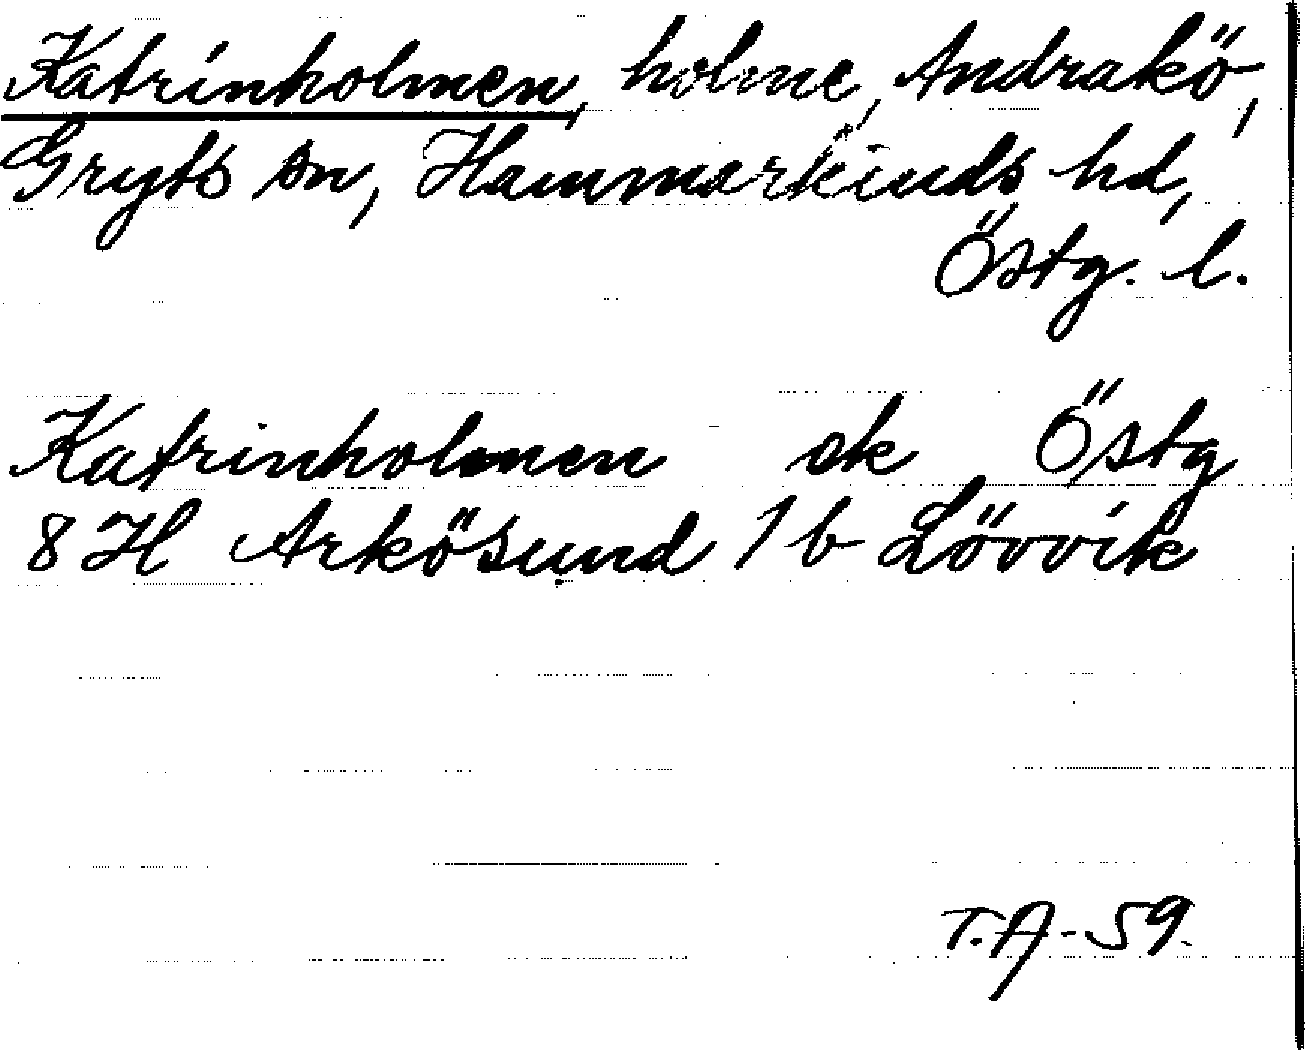 Katrinholmen, holme, Andrakö,
Gryts sn, Hammarkinds hd,
Östg. l.
Katrinholmen ek Östg
8 H Arkösund 1 b Lövvik
T.A-59.